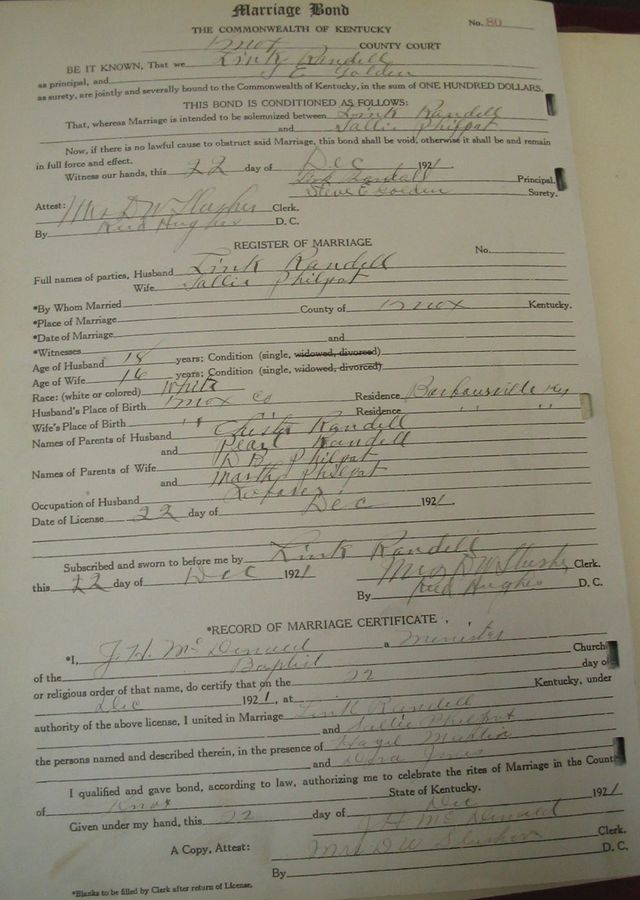 Marriage Bond
No. 80
THE COMMONWEALTH OF KENTUCKY
Knox COUNTY COURT
BE IT KNOWN, That we Link Randell
as principal, and S E Golden
as surety, are jointly and severally bound to the Commonwealth of Kentucky, in the sum of ONE HUNDRED DOLLARS.
THIS BOND IS CONDITIONED AS FOLLOWS:
That, whereas Marriage is intended to be solemnized between Link Randell
and Sallie Philpot
Now, if there is no lawful cause to obstruct said Marriage, this bond shall be void, otherwise it shall be and remain
in full force and effect.
Witness our hands, this 22 day of Dec 1921
Randall Principal.
Steve E Golden Surety.
Attest: Mrs D W Slusher Clerk.
By Hughes D. C.
REGISTER OF MARRIAGE
No.
Full names of parties, Husband Link Randell
Wife Sallie Philpot
*By Whom Married
*Place of Marriage County of Knox Kentucky.
*Date of Marriage
*Witnesses and
Age of Husband 18 years; Condition (single, widowed, divorced)
Age of Wife 16 years; Condition (single, widowed, divorced)
Race: (white or colored) White
Husband's Place of Birth Knox Co Residence Barbourville Ky
Wife's Place of Birth " " Residence " "
Names of Parents of Husband Randell
and Pearl Randell
Names of Parents of Wife Philpot
and Martha Philpot
Occupation of Husband
Date of License 22 day of Dec 1921
Subscribed and sworn to before me by Link Randell
this 22 day of Dec 1921 Mrs D W Slusher Clerk.
By Hughes D. C.
*RECORD OF MARRIAGE CERTIFICATE
*I, J. H. McDonald a Minister
of the Baptist Church
or religious order of that name, do certify that on the 22 day of
Dec 1921, at Kentucky, under
authority of the above license, I united in Marriage Link Randell
and Sallie Philpot
the persons named and described therein, in the presence of
and Jones
I qualified and gave bond, according to law, authorizing me to celebrate the rites of Marriage in the County
of Knox State of Kentucky.
Given under my hand, this 22 day of Dec 1921
J H McDonald
A Copy, Attest: Mrs D W Slusher Clerk.
By D. C.
*Blanks to be filled by Clerk after return of License.